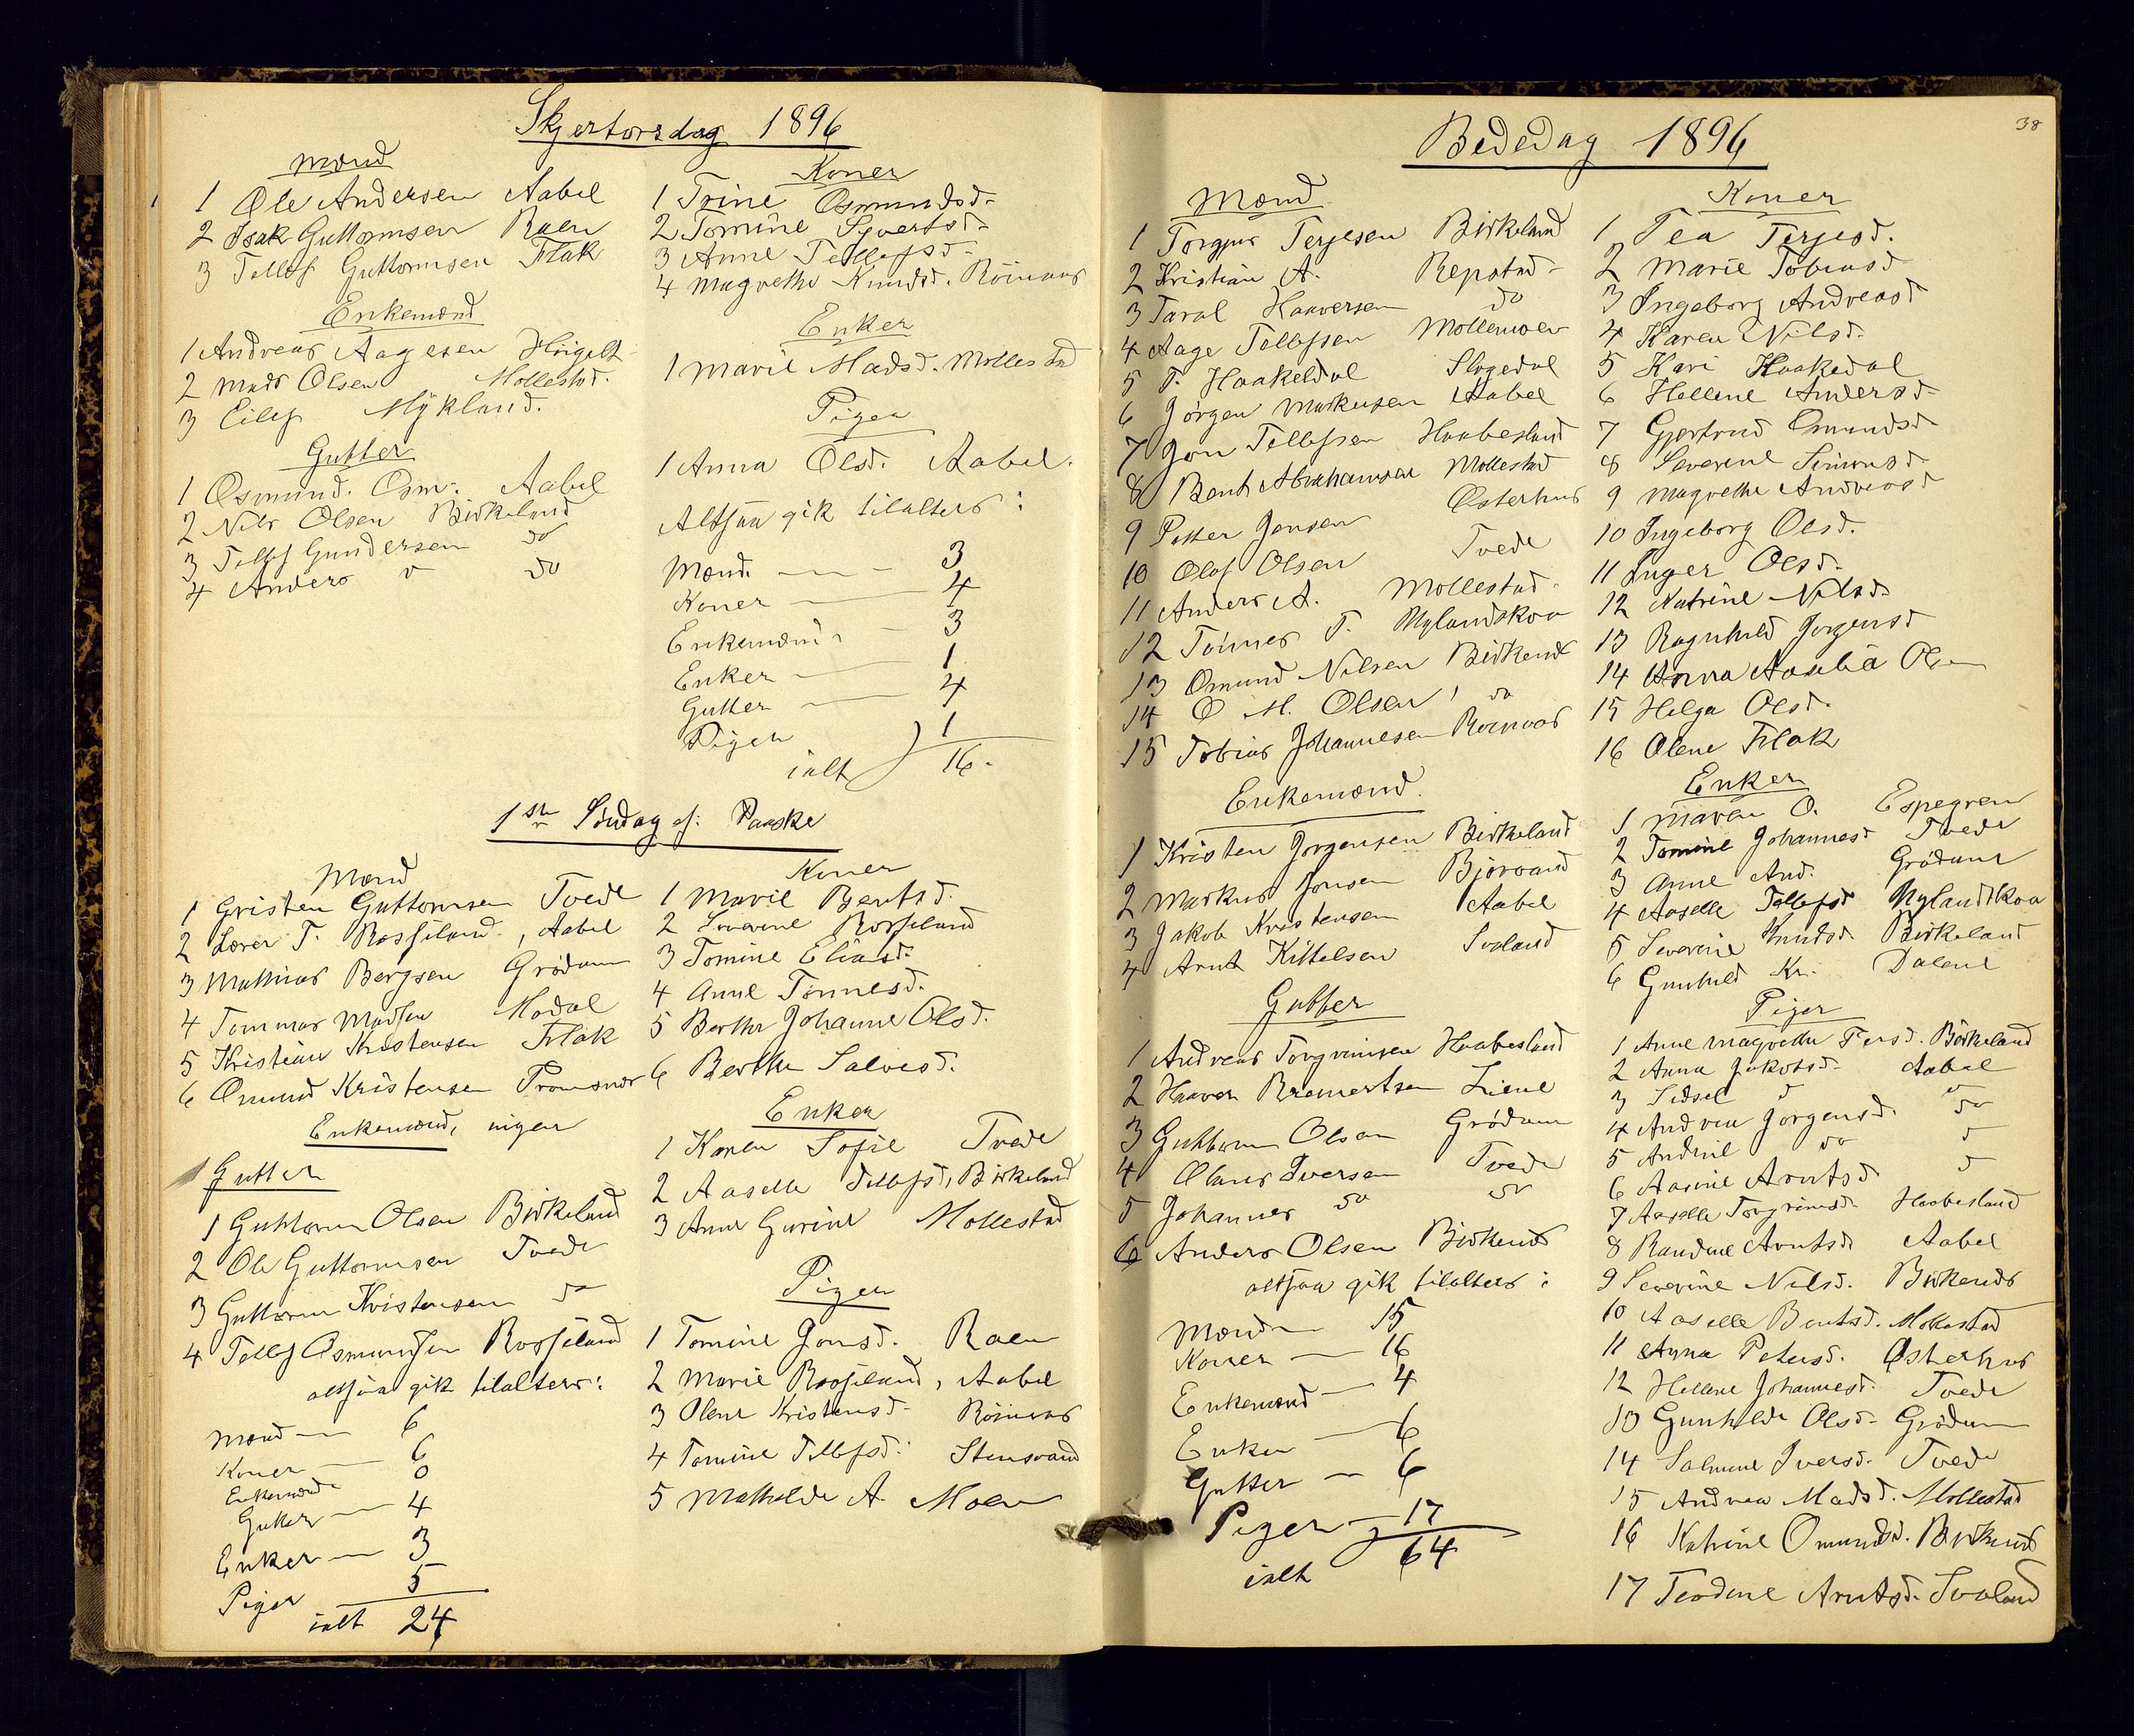 Skjertorsdag 1896
Mænd
1 Ole Andersen Aabel
2 Isak Guttormsen Raen
3 Tellef Guttormsen Flak
Enkemænd
1 Andreas Aagesen
2 Mads Olsen Mollestad.
3 Eilef Mykland.
Gutter
1 Osmund. Osm. Aabel
2 Nils Olsen Birkeland
3 Tellef Gundersen do
4 Anders do
Koner
1 Trine Osmundsd.
2 Tomine Syvertsd.
3 Anne Tellefsd.
4 Magrethe Knudsd. Röinaas
Enker
1 Marie Madsd. Mollestad
Piger
1 Anna Olsd. Aabel.
Altsaa gik tilalters:
Mænd 3
Koner 4
Enkemænd 3
Enker 1
Gutter 4
Piger 1
ialt 16.
1ste Söndag ef: Paaske
Mænd
1 Gristen Guttormsen Tvede
2 Lærer T. Rosseland, Aabel
3 Mathias Bergsen Grödum
4 Tommas Madsen Modal
5 Kristian Kristensen Flak
6 Omund Kristensen
Enkemænd, ingen
Gutter
1 Guttorm Olsen Birkeland
2 Ole Guttormsen Tvede
3 Guttorm Kristensen do
4 Tellef Osmundsen Rosseland
altsaa gik tilalters:
Mænd 6
Koner 6
Enkemænd 0
Gutter 4
Enker 3
Piger 5
ialt 24
Koner
1 Marie Bentsd.
2 Severine Rosseland
3 Tomine Eliasd.
4 Anne Tönnesd.
5 Berthe Johanne Olsd.
6 Berthe Salvesd.
Enker
1 Karen Sofie Tvede
2 Aaselle Tellefsd, Birkeland
3 Anne Gurine Mollestad
Piger
1 Tomine Jonsd. Raen
2 Marie Rosseland, Aabel
3 Olene Kristensd. Röinaas
4 Tomine Tellefsd. Stensvand
5 Mathilde A. Moen
38
Bededag 1896
Mænd
1 Torgjus Terjesen Birkeland
2 Kristian A. Repstad
3 Taral Haaversen do
4 Aage Tellefsen Mollemoen
5 T. Haakedal Slogedal
6 Jörgen Markusen Aabel
7 Jon Tellefsen Haabesland
8 Bent Abrahamsen Mollestad
9 Petter Jensen Osterhus
10 Olaf Olsen Tvede
11 Anders A. Mollestad.
12 Tönnes T. Nylandskoa
13 Omund Nilsen Birkenes
14 O M. Olsen, do
15 Tobias Johannesen
Enkemænd.
1 Kristen Jorgensen Birkeland
2 Markus Jonsen Bjorvand
3 Jakob Kristensen Aabel
4 Arnt Kittelsen Svaland
Gutter
1 Andreas Torgrimsen Haabesland
2 Haaver Bremertsen Liene
3 Guttorm Olsen Grödum
4 Olaus Iversen Tvede
5 Johannes do do
6 Anders Olsen Birkenes
altsaa gik tilalters:
Mænd 15
Koner 16
Enkemænd 4
Enker 6
Gutter 6
Piger 17
ialt 64
Koner
1 Tea Terjesd.
2 Marie Tobiasd
3 Ingeborg Andreasd
4 Karen Nilsd.
5 Kari Haakedal
6 Hellene Andersd.
7 Gjertrud Omundsd
8 Severine Simonsd.
9 Magrethe Andreasd
10 Ingeborg Olsd.
11 Inger Olsd.
12 Katrine Nilsd.
13 Ragnhild Jorgensd
14 Anna Olsen
15 Helga Olsd.
16 Olene Flak
Enker
1 Maren O. Espegren
2 Tomine Johannesd Tvede
3 Anne And. Grödum
4 Aaselle Tellefsd Nylandskoa
5 Severine Knudsd. Birkeland
6 Gunhild Kr. Dalene
Piger
1 Anne Magrethe Birkeland
2 Anna Jakobsd. Aabel
3 Sidsel do do
4 Andrea Jorgensd. do
5 Andrine do do
6 Aasine Arntsd do
7 Aaselle Torgrimsd. Haabesland
8 Randine Arntsd. Aabel
9 Severine Nilsd. Birkenes
10 Aaselle Bentsd. Mollestad
11 Anna Petersd. Osterhus
12 Hellene Johannesd. Tvede
13 Gunhilde Olsd. Grödum
14 Salmine Iversd. Tvede
15 Andrea Madsd. Mollestad
16 Katrine Omundsd. Birkenes
17 Teodine Arntsd. Svaland